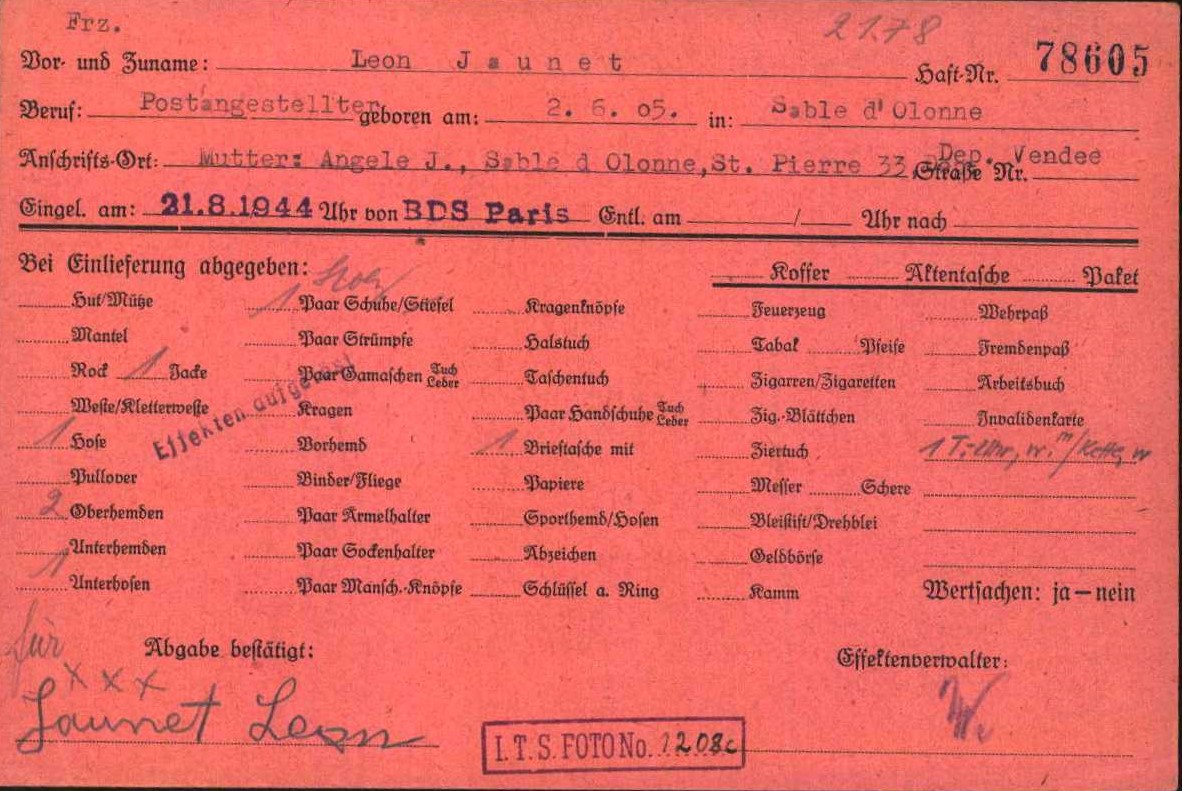 Frz.
2178
Vor- und Zuname: Leon Jaunet Haft-Nr. 78605
Beruf: Postangestellter geboren am: 2. 6. 05. in: Sable d'Olonne
Anschrifts-Ort: Mutter: Angele J., Sable d Olonne, St. Pierre 33, Dep. Vendee Straße Nr.
Eingel. am: 21.8.1944 Uhr von BDS Paris Entl. am / Uhr nach
Bei Einlieferung abgegeben: Koffer Aktentasche Paket
Hut/Mütze 1 Paar Schuhe/Stiefel Kragenknöpfe Feuerzeug Wehrpaß
Mantel Paar Strümpfe Halstuch Tabak Pfeife Fremdenpaß
Rock 1 Jacke Paar Gamaschen Tuch Leder Taschentuch Zigarren/Zigaretten Arbeitsbuch
Weste/Kletterweste Kragen Paar Handschuhe Tuch Leder Zig.-Blättchen Invalidenkarte
Effekten
1 Hose Vorhemd 1 Brieftasche mit Ziertuch 1 T.-Uhr, w. m/Kette, w
Pullover Binder/Fliege Papiere Messer Schere
2 Oberhemden Paar Ärmelhalter Sporthemd/Hosen Bleistift/Drehblei
Unterhemden Paar Sockenhalter Abzeichen Geldbörse
1 Unterhosen Paar Mansch.-Knöpfe Schlüssel a. Ring Kamm Wertsachen: ja – nein
für Abgabe bestätigt: Effektenverwalter:
x x x
Jaunet Leon
I.T.S. FOTO No. 1208c